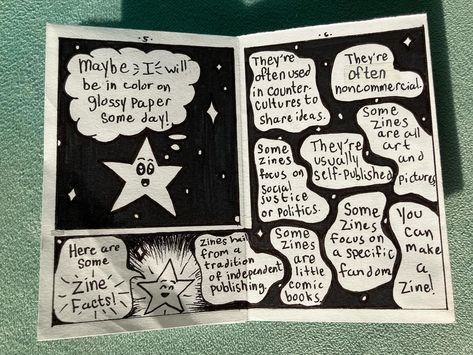 · 5 ·
Maybe I will
be in color on
glossy paper
some day!
Here are
Some
Zine
Facts!
Zines hail
from a
tradition
of independent
publishing.
· 6 ·
They're
often used
in counter
cultures to
share ideas.
They're
often
noncommercial.
Some
zines
are all
art
and
pictures
They're
usually
self-published
Some
zines
focus on
social
justice
or politics.
Some
zines
are
little
comic
books.
Some
zines
focus on
a specific
fandom
You
can
make
a
Zine!